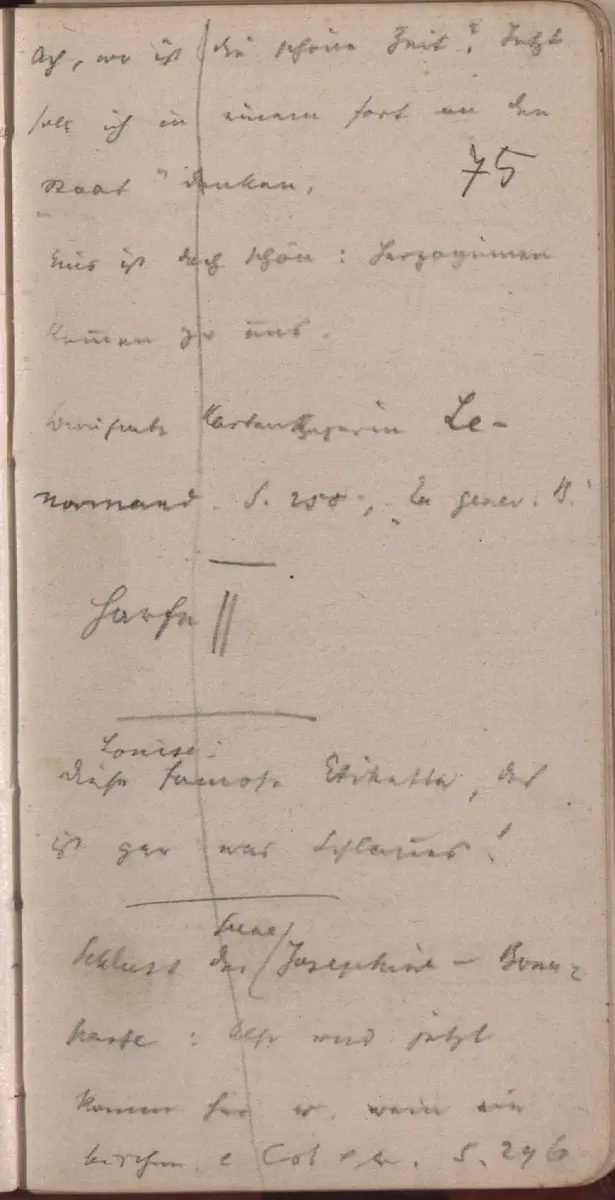 Ach, wo ist die schöne Zeit? Jetzt
soll ich in einem fort an den
Staat" denken.
75
Eins ist doch schön: Herzoginnen
kom̅en zu uns.
Kartenlegerin Le-
normand. S. 250, „Zu gener. B."
Harfe ||
Louise:
diese famose Etikette, das
ist gar was Schlaues!
Schluss der (Szene) Josephine – Bona-
parte: Alles wird jetzt
komm her
S. 296